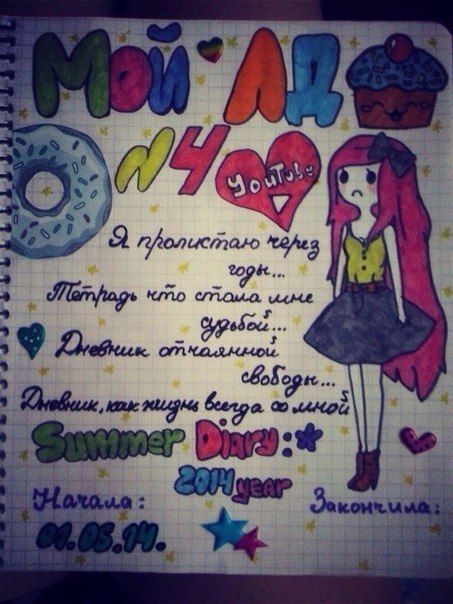 Мой ЛД
N4
YouTube
Я пролистаю через
годы...
Тетрадь что стала мне
судьбой...
Дневник отчаянной
свободы...
Дневник, как жизнь всегда со мной
Summer Diary:*
2014 year
Начала:
Закончила:
01.05.14.